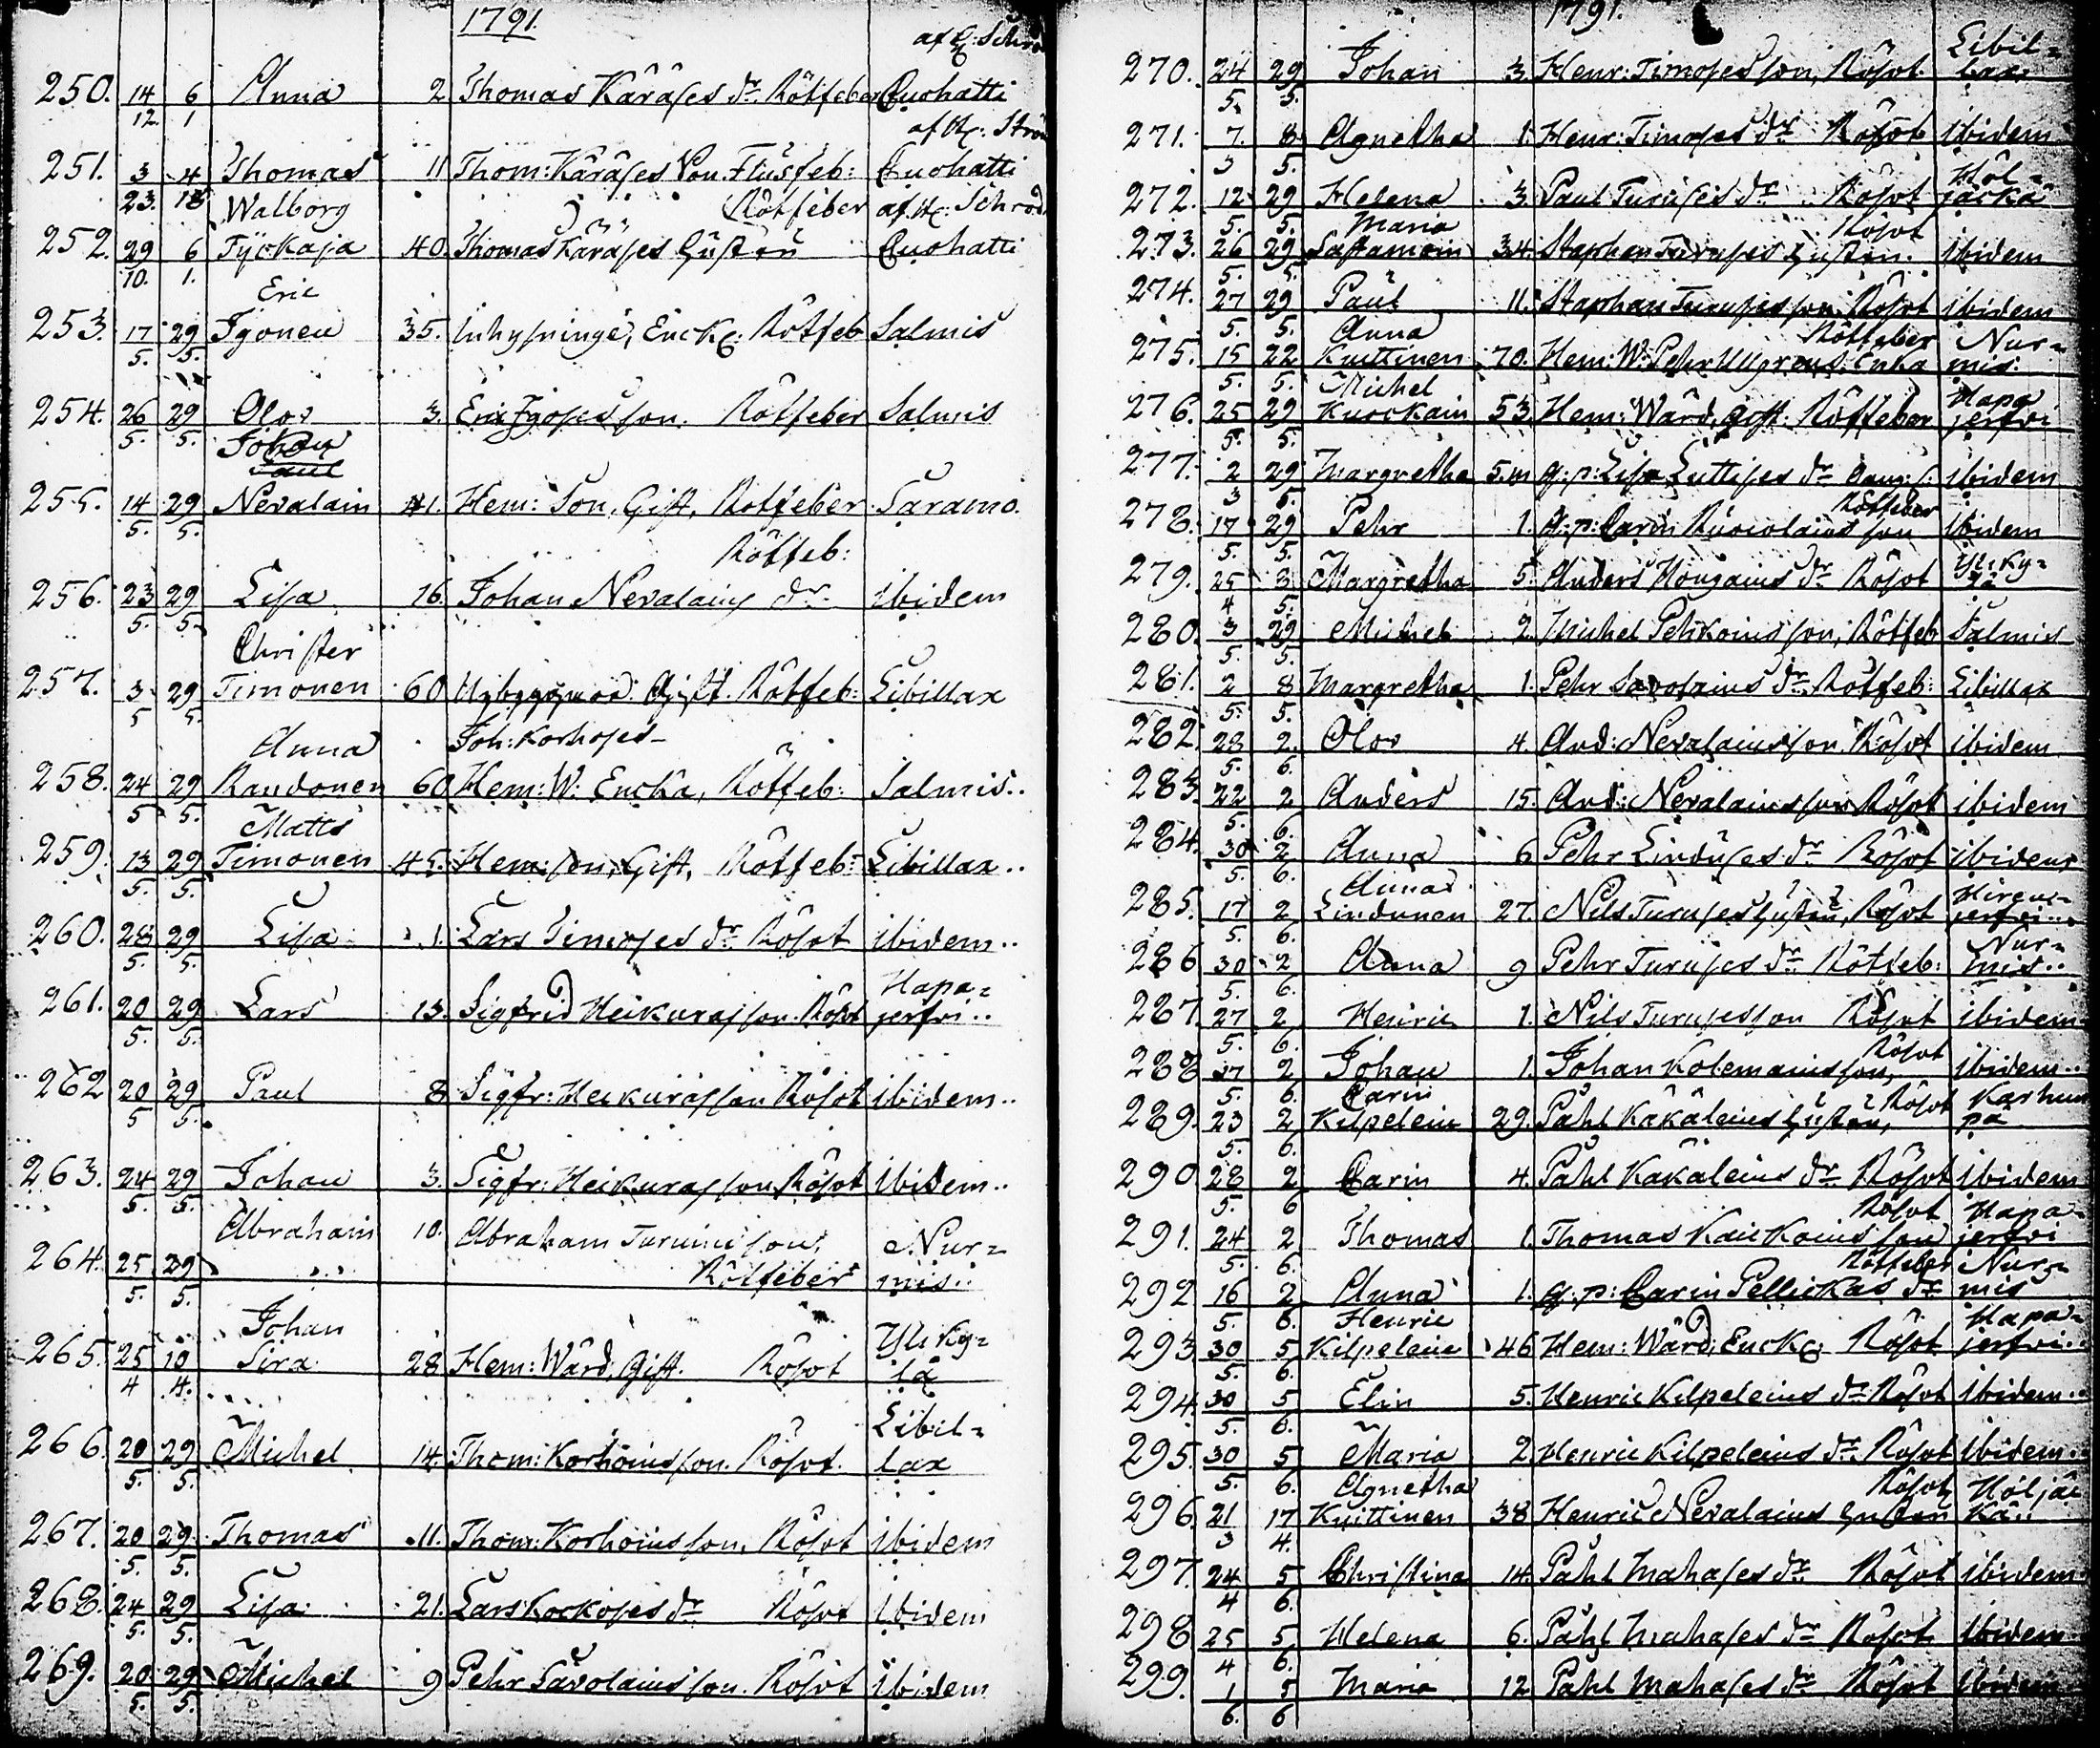 1791.
af H: Schrö
250. 14/12. 6/1 Anna 2 Thomas Käräses dr. Rötfeber Quohatti
af H: Strö
251. 3/23. 4/18 Thomas 11 Thom: Käräses Son. Flussfeb: Quohatti
Walborg Rötfeber af H: Schrod
252. 29/10. 6/1. Tyckäjä 40. Thomas Käräses hustru Quohatti
Eric
253. 17/5. 29/5. Igonen 35. Inhysninge, Enckl. Rötfeb Salmis
254. 26/5. 29/5. Olov 3. Eric Igoses son. Rötfeber Salmis
Johan
255. 14/5. 29/5. Nevalain 41. Hem: Son, Gift, Rötfeber Saramo.
Rötfeb:
256. 23/5. 29/5. Lisa 16. Johan Nevalains dr. ibidem
Christer
257. 3/5 29/5. Timonen 60 Nybyggare Gift. Rötfeb: Libillax
Anna Joh: Korhoses
258. 24/5 29/5. Raudonen 60 Hem: W: Encka, Rötfeb: Salmis..
Matts
259. 13/5. 29/5. Timonen 45. Hem: son, Gift, Rötfeb: Libillax..
260. 28/5. 29/5. Lisa 1. Lars Timoses dr. Rösot ibidem..
Hapa=
261. 20/5. 29/5. Lars 13. Sigfrid Heikuras son. Rösot jerfvi..
262 20/5 29/5. Paul 8 Sigfr: Heikuras son Rösot ibidem..
263. 24/5. 29/5. Johan 3. Sigfr: Heikuras son Rösot ibidem..
Abraham 10. Abraham Turuins son, Nur=
264. 25/5. 29/5. Rötfeber mis..
Johan Yliky=
265. 25/4 10/4. Sira 28 Hem: Wärd. Gift. Rösot lä
Libil=
266. 20/5. 29/5. Michel 14. Thom: Korhoins son. Rösot. lax
267. 20/5. 29/5. Thomas 11. Thom: Korhoins son, Rösot ibidem
268. 24/5. 29/5. Lisa 21. Lars Kockoses dr Rösot ibidem
269. 20/5. 29/5. Michel 9 Pehr Savolains son. Rösot ibidem
1791.
Libil=
270. 24/5. 29/5. Johan 3. Henr: Timoses son, Rösot lax
271. 7./3 8/5. Agnetha 1. Henr: Timoses dr. Rösot ibidem
Höl=
272. 12/5. 29/5. Helena 3 Paul Turuses dr. Rösot jäckä
Maria Rösot
273. 26/5. 29/5. Sastamoin 34. Staphan Turuses hustru. ibidem
274. 27/5. 29/5. Paul 11. Staphan Turuses son. Rösot ibidem
Anna Rötfeber Nur=
275. 15/5. 22/5. Knittinen 70. Hem: W: Pehr Enka mis.
Michel Hapa
276. 25/5. 29/5. Kuockain 53. Hem: Wärd, gift. Rötfeber jerfvi
277. 2/3 29/5. Margretha 5.m q: p: Lisa Luttises dr. ibidem
Rötfeber
278. 17/5. 29/5. Pehr 1. q: p: Carin son ibidem
279. 25/4 3/5. Margretha 5. Anders Hougains dr. Rösot Yliky=lä
280. 3/5. 29/5. Michel 2. Michel Pehkoins son, Rötfeb Salmis
281. 2/5. 8/5. Margretha 1. Pehr Savolains dr. Rötfeb: Libillax
282. 28/5. 2/6. Olov 4. And: Nevalains son. Rösot ibidem
283. 22/5. 2/6. Anders 15. And: Nevalains son Rösot ibidem
284. 30/5. 2/6. Anna 6 Pehr Linduses dr. Rösot ibidem
Anna Hirven=
285. 17/5. 2/6. Lindunen 27. Nils Turuses hustru, Rösot jerfvi..
Nur=
286 30/5. 2/6. Anna 9 Pehr Turuses dr. Rötfeb: mis..
287. 27/5. 2/6. Henric 1. Nils Turuses son Rösot ibidem
Rösot
288 27/5. 2/6. Johan 1. Johan Kolemains son, ibidem..
Carin Rösot Karhun
289. 23/5. 2/6. Kilpelein 29. Påhl Käkäleins hustru, pä
290 28/5. 2/6 Carin 4. Påhl Käkäleins dr. Rösot ibidem
Rösot Hapa=
291. 24/5. 2/6. Thomas 1. Thomas son jerfvi
Rötfeber Nur=
292 16/5. 2/6. Anna 1. q: p: Carin Pellickas dr. mis
Henric Hapa=
293 30/5. 5/6. Kilpelein 46 Hem: Wärd, Enckl. Rösot jerfvi..
294 30/5. 5/6. Elin 5. Henric Kilpeleins dr. Rösot ibidem..
295. 30/5. 5/6. Maria 2 Henric Kilpeleins dr. Rösot ibidem..
Agnetha Rösot Höljäc
296. 21/3 17/4. Knittinen 38 Henric Nevalains hustru kä..
297. 24/4 5/6. Christina 14. Påhl Mahases dr. Rösot ibidem
298 25/4 5/6. Helena 6. Påhl Mahases dr. Rösot ibidem
299. 1/6. 5/6 Maria 12 Påhl Mahases dr. Rösot ibidem